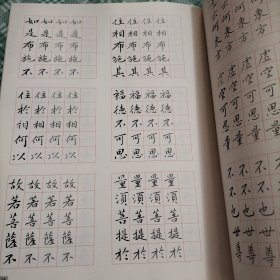 如是布施不
如是布施不
如是布施不
如是布施不
住於相何以
住於相何以
住於相何以
住於相何以
故若菩薩不
故若菩薩不
故若菩薩不
故若菩薩不
住相布施其
住相布施其
住相布施其
住相布施其
福德不可思
福德不可思
福德不可思
福德不可思
量須菩提於
量須菩提於
量須菩提於
量須菩提於
何東方
何東方
虛空可思量
虛空可思量
不不也世尊
不不也世尊